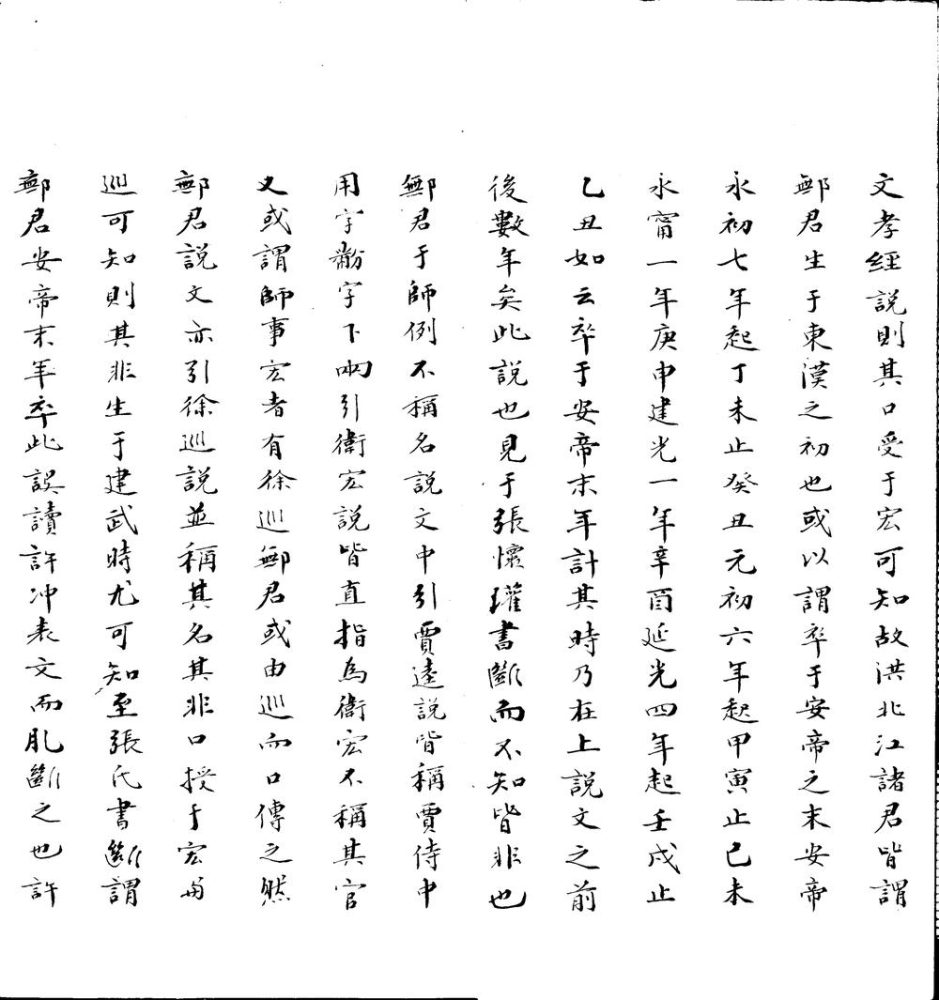 文孝經說則其口受于宏可知故洪北江諸君皆謂
鄦君生于東漢之初也或以謂卒于安帝之末安帝
永初七年起丁未止癸丑元初六年起甲寅止己未
永甯一年庚申建光一年辛酉延光四年起壬戌止
乙丑如云卒于安帝末年計其時乃在上說文之前
後數年矣此說也見于張懷瓘書斷而不知皆非也
鄦君于師例不稱名說文中引賈逵說皆稱賈侍中
用字黺字下兩引衞宏說皆直指為衞宏不稱其官
又或謂師事宏者有徐巡鄦君或由巡而口傳之然
鄦君說文亦引徐巡說並稱其名其非口授于宏與
巡可知則其非生于建武時尤可知至張氏書斷謂
鄦君安帝末年卒此誤讀許冲表文而肊斷之也許